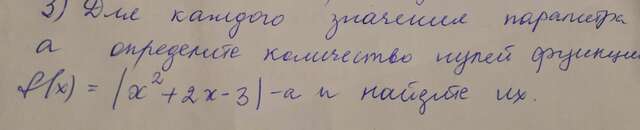 3) Для каждого значения параметра
а определите количество нулей функции
f(x) = |x²+2x-3|-a и найдите их.